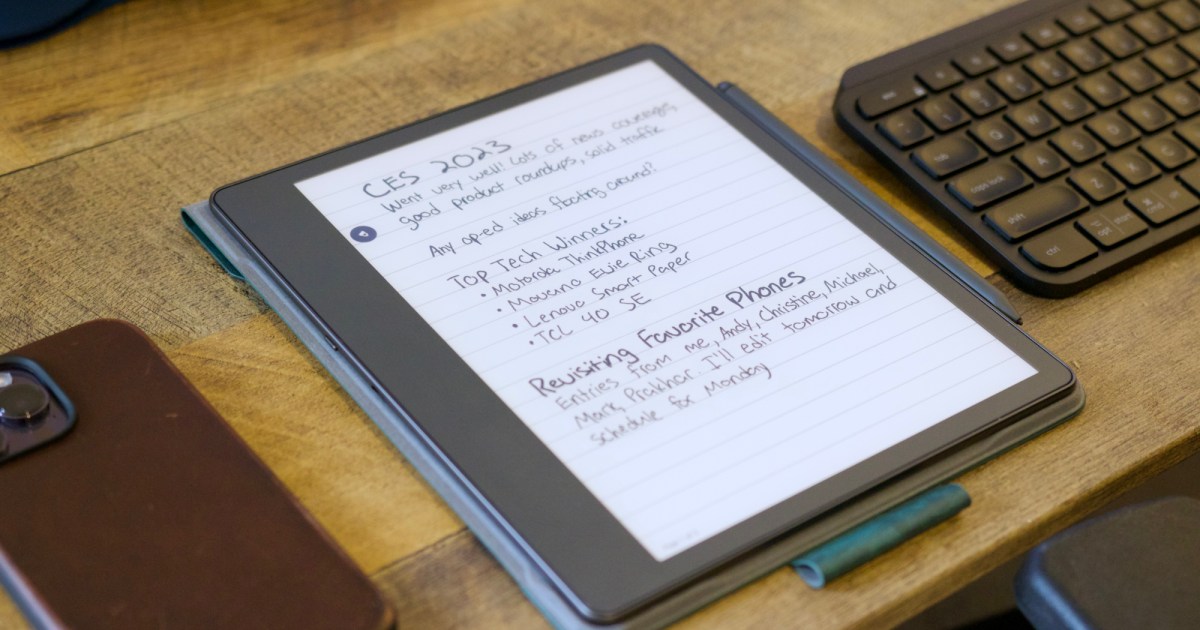 CES 2023
Went very well! Lots of news coverage,
good product roundups, solid traffic
Any op-ed ideas floating around?
Top Tech Winners:
• Motorola ThinkPhone
• Movano Evie Ring
• Lenovo Smart Paper
• TCL 40 SE
Revisiting Favorite Phones
Entries from me, Andy, Christine, Michael,
Mark, Prakhar. I'll edit tomorrow and
schedule for Monday
esc
tab
Q
W
caps lock
A
S
D
shift
Z
X
ctrl
opt
cmd